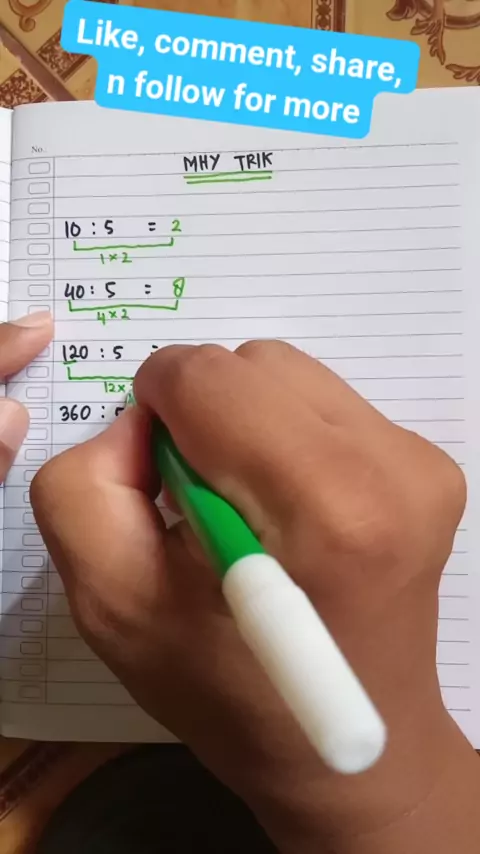 Like, comment, share,
n follow for more
No.
MHY TRIK
10 : 5 = 2
1 × 2
40 : 5 = 8
4 × 2
120 : 5 =
12 ×
360 : 5